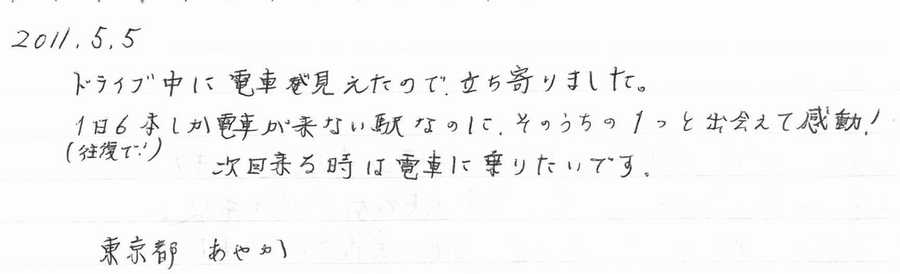 2011.5.5
ドライブ中に電車が見えたので、立ち寄りました。
1日6本しか電車が来ない駅なのに、そのうちの1つと出会えて感動!
(往復で!)
次回来る時は電車に乗りたいです。
東京都 あやか